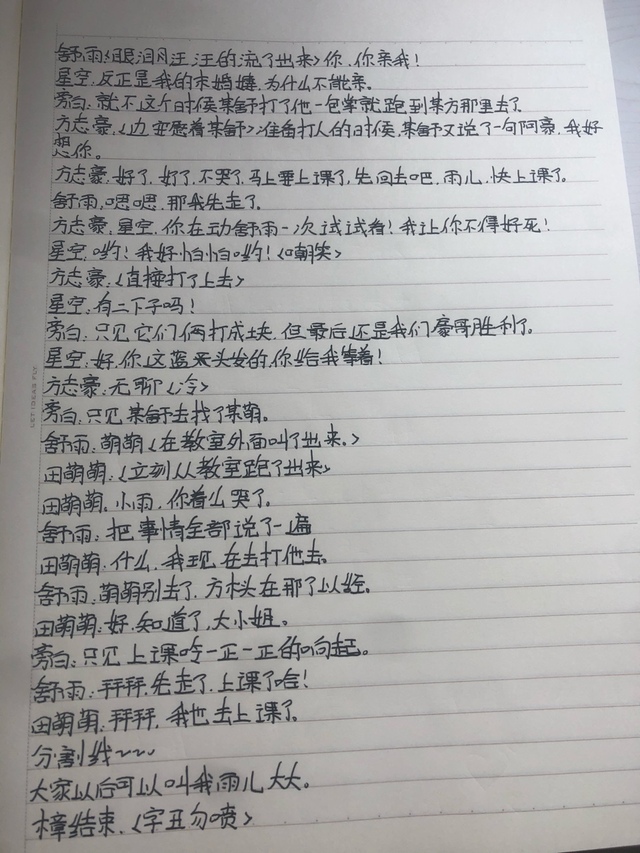 舒雨:<眼泪汪汪的流了出来>你,你亲我!
星空,反正是我的未婚妻,为什么不能亲。
旁白:就在这个时候某舒打了他一包掌就跑到某方那里去了
方志豪,<边安慰着某舒>准备打人的时候,某舒又说了一句阿豪,我好
想你。
方志豪,好了,好了,不哭了,马上要上课了,先回去吧,雨儿,快上课了。
舒雨,嗯嗯,那我先走了。
方志豪:星空,你在动舒雨一次试试看!我让你不得好死!
星空,哟!我好怕怕哟!<嘲笑>
方志豪:<直接打了上去>
星空:有二下子吗!
旁白:只见它们俩打成块,但最后还是我们豪哥胜利了。
星空:好,你这蓝头发的,你给我等着!
方志豪:无聊<冷>
旁白:只见某舒去找了某萌。
舒雨:萌萌<在教室外面叫了出来。>
田萌萌:<立刻从教室跑了出来>
田萌萌,小雨,你着么哭了。
舒雨:把事情全部说了一遍
田萌萌:什么,我现在去打他去。
舒雨,萌萌别去了,方木头在那了以经。
田萌萌:好,知道了,大小姐。
旁白:只见上课呤一正一正的响起。
舒雨:拜拜,先走了,上课了哈!
田萌萌:拜拜,我也去上课了。
分割线~~~
大家以后可以叫我雨儿大大。
本章结束,<字丑勿喷>